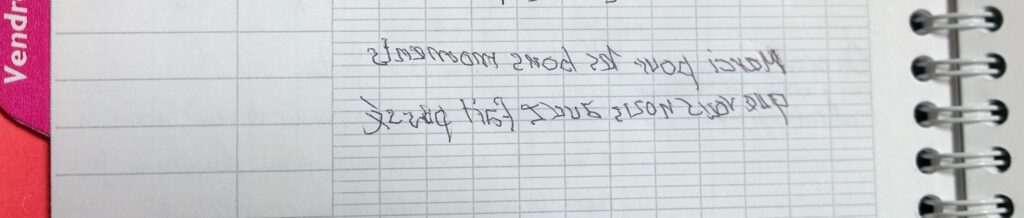 Vendr
Merci pour les bons moments
que vous nous avez fait